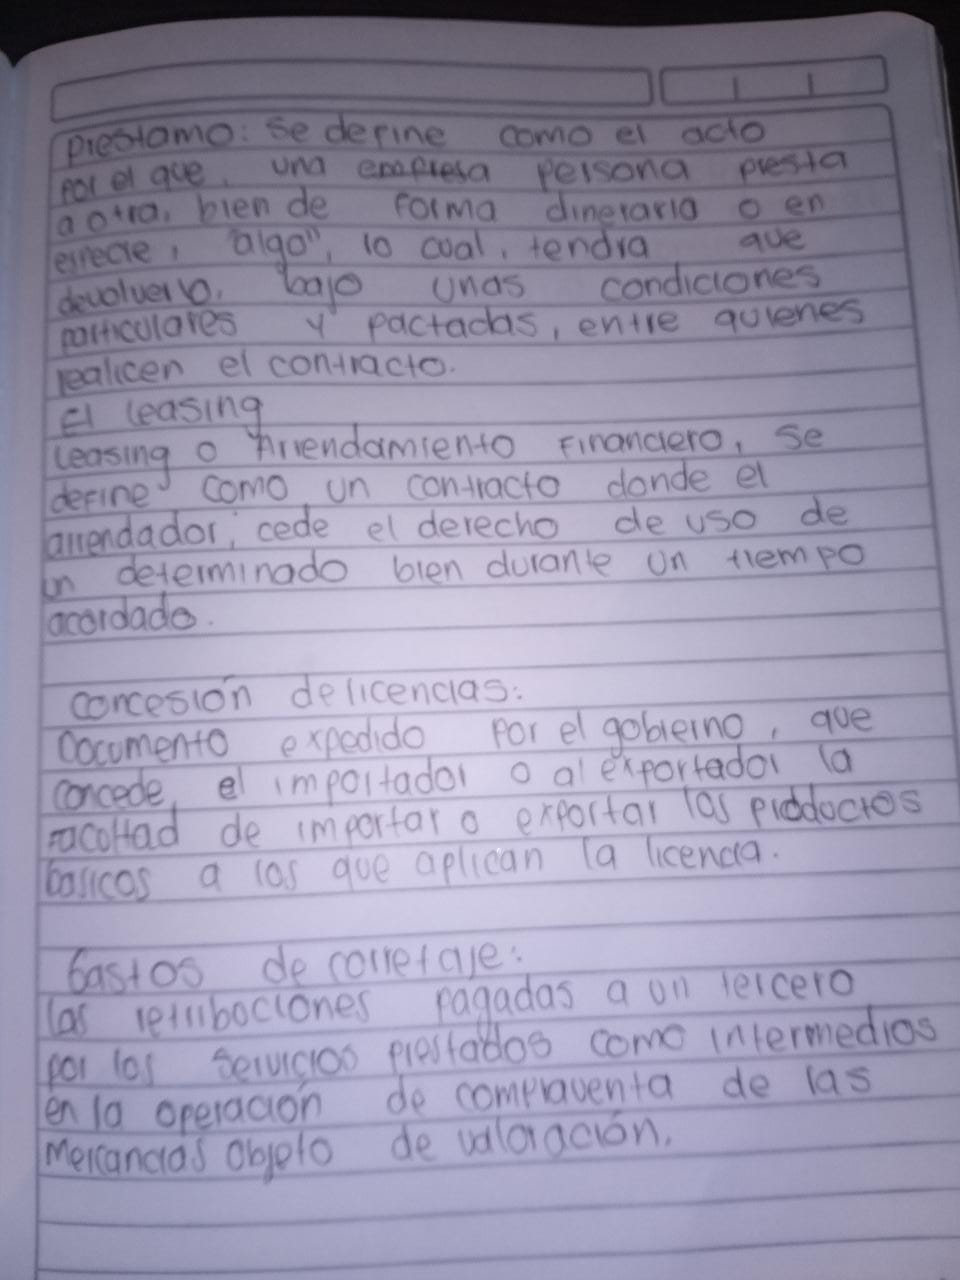 prestamo: se define como el acto
por el que, una empresa persona presta
a otra, bien de forma dineraria o en
especie, "algo", lo cual, tendra que
devolverlo, bajo unas condiciones
particulares y pactadas, entre quienes
realicen el contracto.
El leasing
leasing o Arrendamiento Financiero, se
define como un contracto donde el
arrendador, cede el derecho de uso de
un determinado bien durante un tiempo
acordado.
concesión de licencias:
Documento expedido por el gobierno, que
concede, el importador o al exportador la
facultad de importar o exportar los productos
basicos a los que aplican la licencia.
Gastos de corretaje:
las retribuciones pagadas a un tercero
por los servicios prestados como intermedios
en la operación de compraventa de las
mercancias objeto de valoración.